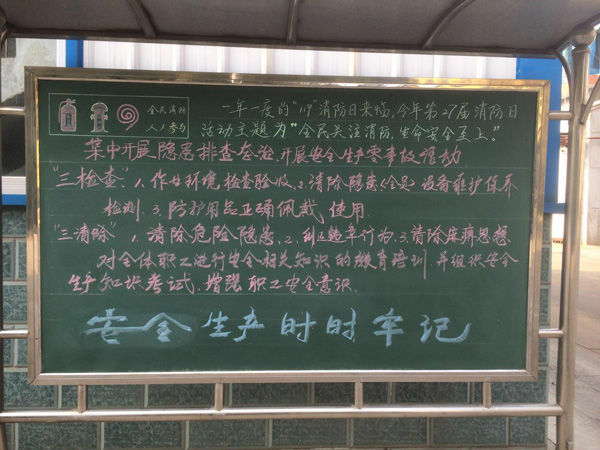 全民消防
人人参与
一年一度的"119"消防日来临,今年第27届消防日
活动主题为"全民关注消防,生命安全至上。"
集中开展隐患排查整治,开展安全生产零事故活动
"三检查":1、作业环境,检查验收,2、消除隐患(全员)设备维护保养
检测.3.防护用品正确佩戴使用.
"三清除" 1、清除危险隐患.2、纠正违章行为.3.清除麻痹思想
对全体职工进行安全相关知识的教育培训并组织安全
生产知识考试.增强职工安全意识.
安全生产时时牢记